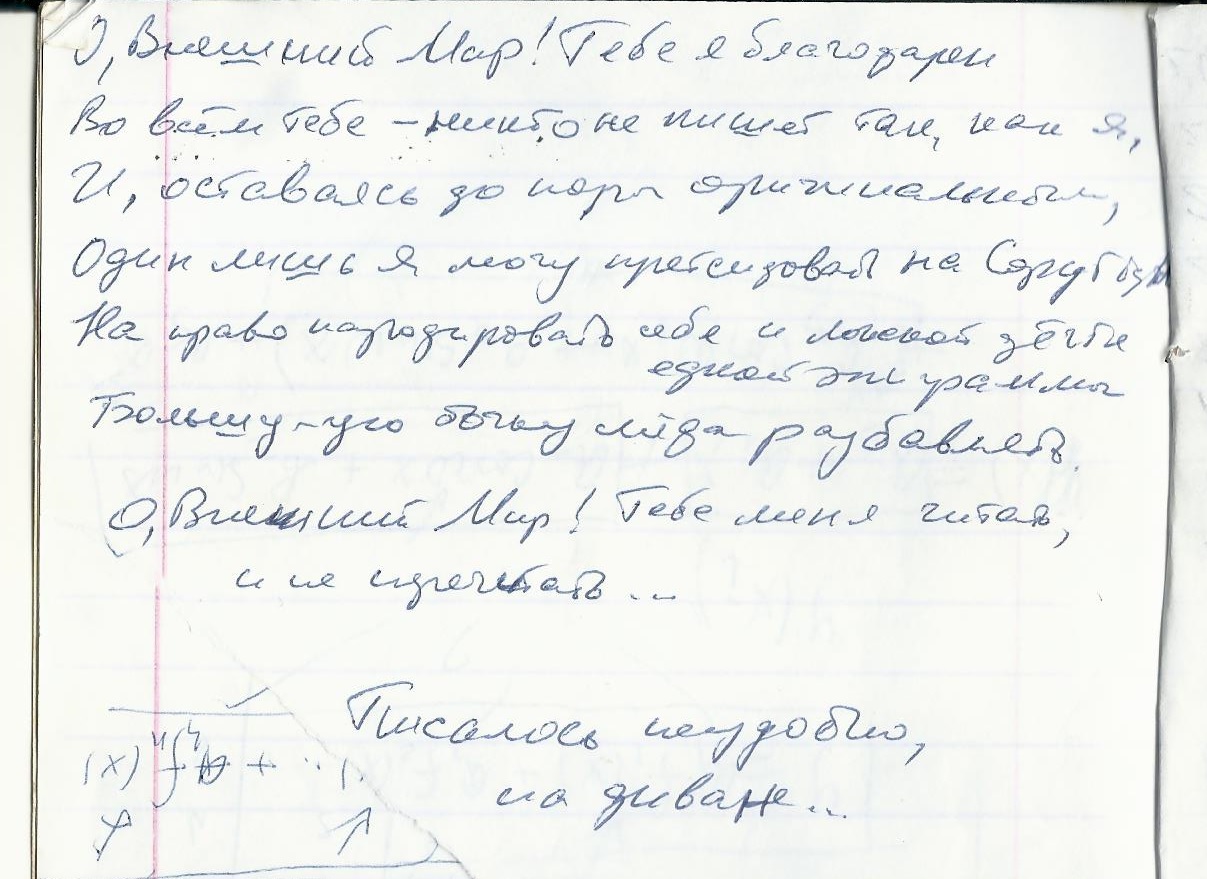 О, Внешний Мир! Тебе я благодарен
Во всём тебе – никто не пишет так, как я,
И, оставаясь до поры оригинальным,
Один лишь я могу претендовать на
На право пародировать себя и ложкой дёгтя
одной эпиграммы
Большу-ую бочку мёда разбавлять.
О, Внешний Мир! Тебе меня читать,
и не прочитать...
Писалось неудобно,
на диване...
(x)